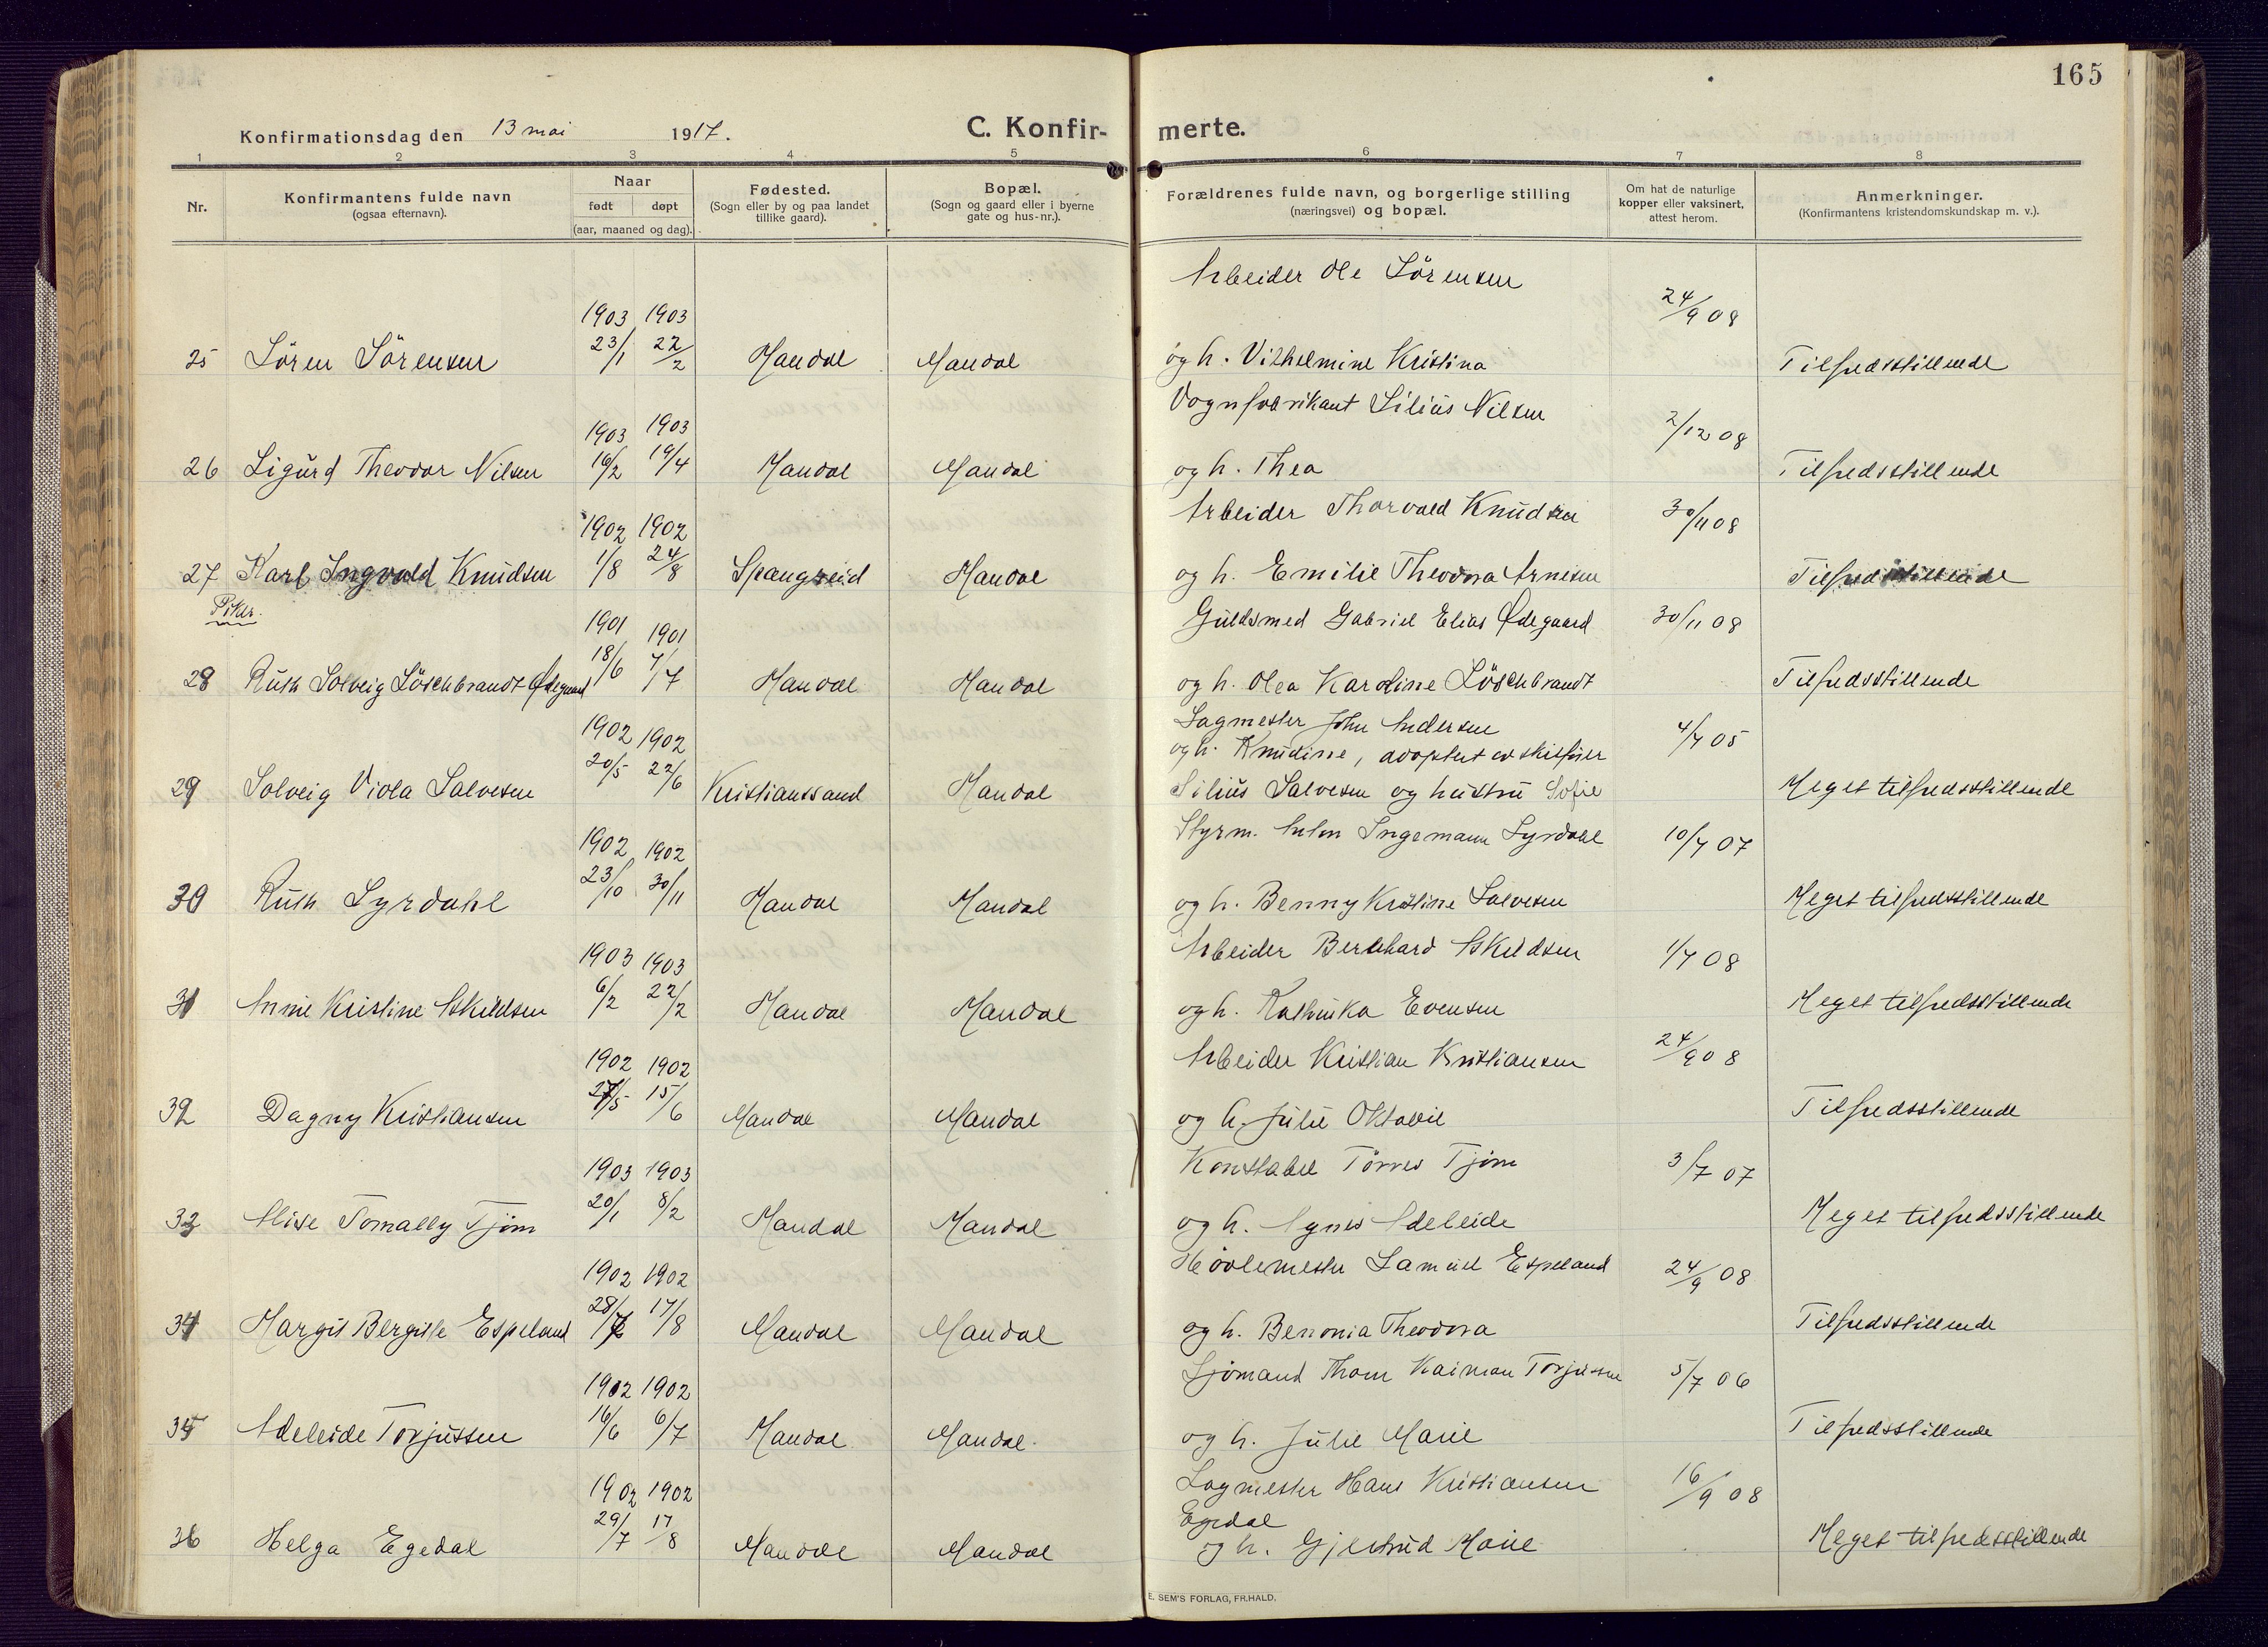 165
Konfirmationsdag den 13 mai 1917.
C. Konfirmerte.
1 2 3 4 5 6 7 8
Nr.
Konfirmantens fulde navn
(ogsaa efternavn).
Naar
født døpt
(aar, maaned og dag).
Fødested.
(Sogn eller by og paa landet
tillike gaard).
Bopæl.
(Sogn og gaard eller i byerne
gate og hus-nr.).
Forældrenes fulde navn, og borgerlige stilling
(næringsvei) og bopæl.
Om hat de naturlige
kopper eller vaksinert,
attest herom.
Anmerkninger.
(Konfirmantens kristendomskundskap m. v.).
Arbeider Ole Sörensen
1903 1903 24/9 08
25 Sören Sörensen 23/1 22/2 Mandal Mandal og h. Vilhelmine Kristina Tilfredsstillende
Vognfabrikant Silius Nilsen
1903 1903 2/12 08
26 Sigurd Theodor Nilsen 16/2 19/4 Mandal Mandal og h. Thea Tilfredsstillende
Arbeider Thorvald Knudsen 30/11 08
1902 1902
27 Karl Ingvald Knudsen 1/8 24/8 Spangreid Mandal og h. Emilie Theodora Arnesen Tilfredsstillende
Piker.
Guldsmed Gabriel Elias Ødegaard 30/11 08
1901 1901
28 Ruth Solveig Löschbrandt Ødegaard 18/6 7/7 Mandal Mandal og h. Olea Karoline Löschbrandt Tilfredsstillende
Sagmester John Andersen
1902 1902 4/7 05
og h. Knudine, adoptert av skipsfører
29 Solveig Viola Salvesen 20/5 22/6 Kristianssand Mandal Silius Salvesen og hustru Sofie Meget tilfredsstillende
Styrm. Anton Ingemann Syrdahl 10/7 07
1902 1902
30 Ruth Syrdahl 23/10 30/11 Mandal Mandal og h. Benny Kristine Salvesen Meget tilfredsstillende
Arbeider Bernhard Askildsen 1/7 08
1903 1903
31 Annie Kristine Askildsen 6/2 22/2 Mandal Mandal og h. Kathinka Evensen Meget tilfredsstillende
Arbeider Kristian Kristiansen 24/9 08
1902 1902
32 Dagny Kristiansen 27/5 15/6 Mandal Mandal og h. Julie Oktavie Tilfredsstillende
Konstabel Törres Tjöm 3/7 07
1903 1903
33 Alise Tomally Tjöm 20/1 8/2 Mandal Mandal og h. Agnes Adeleide Meget tilfredsstillende
Hövlemester Samuel Espeland 24/9 08
1902 1902
34 Margit Bergitte Espeland 28/7 17/8 Mandal Mandal og h. Benonia Theodora Tilfredsstillende
Sjömand Thom Kaiman Torjussen 5/7 06
1902 1902
35 Adeleide Torjussen 16/6 6/7 Mandal Mandal og h. Julie Marie Tilfredsstillende
Sagmester Hans Kristiansen 16/9 08
1902 1902
Egedal
36 Helga Egedal 29/7 17/8 Mandal Mandal og h. Gjertrud Marie Meget tilfredsstillende
E. SEM'S FORLAG, FR.HALD.